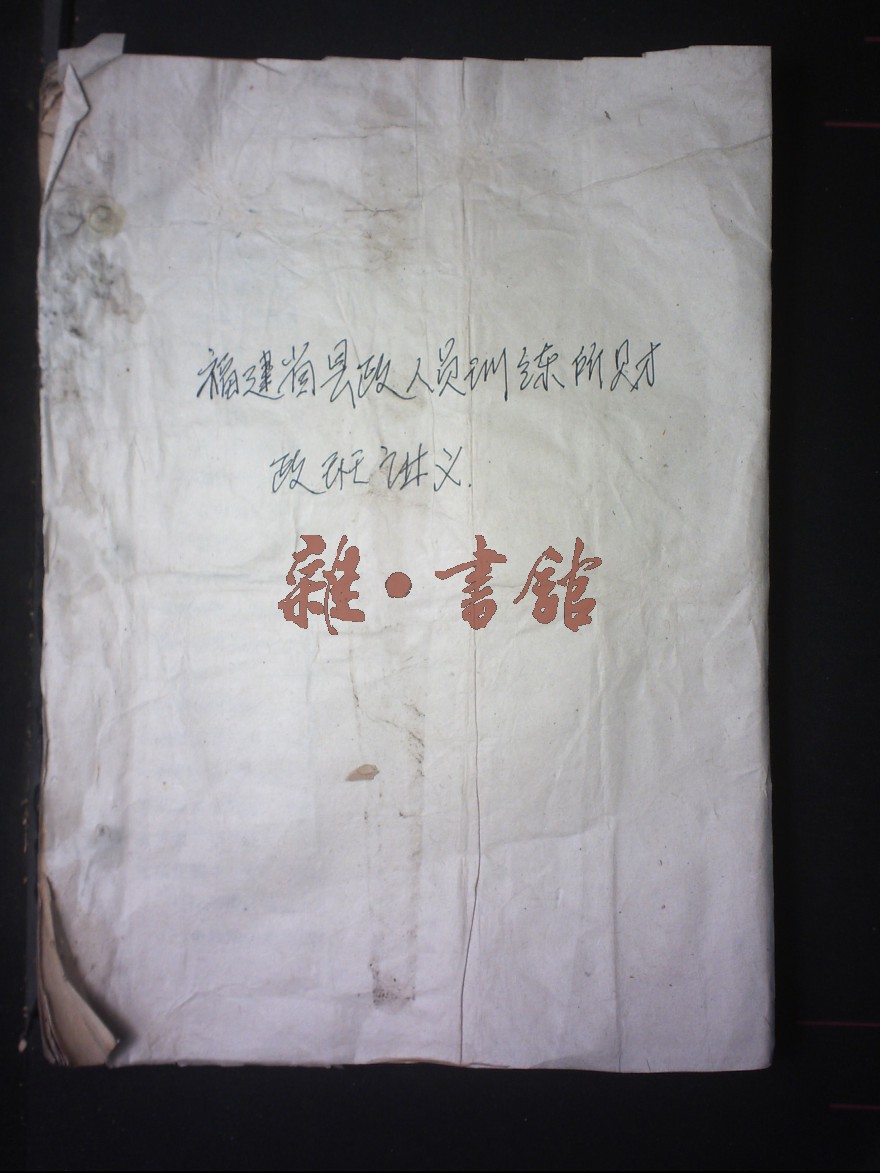 福建省县政人员训练所财
政班讲义.
雜·書館